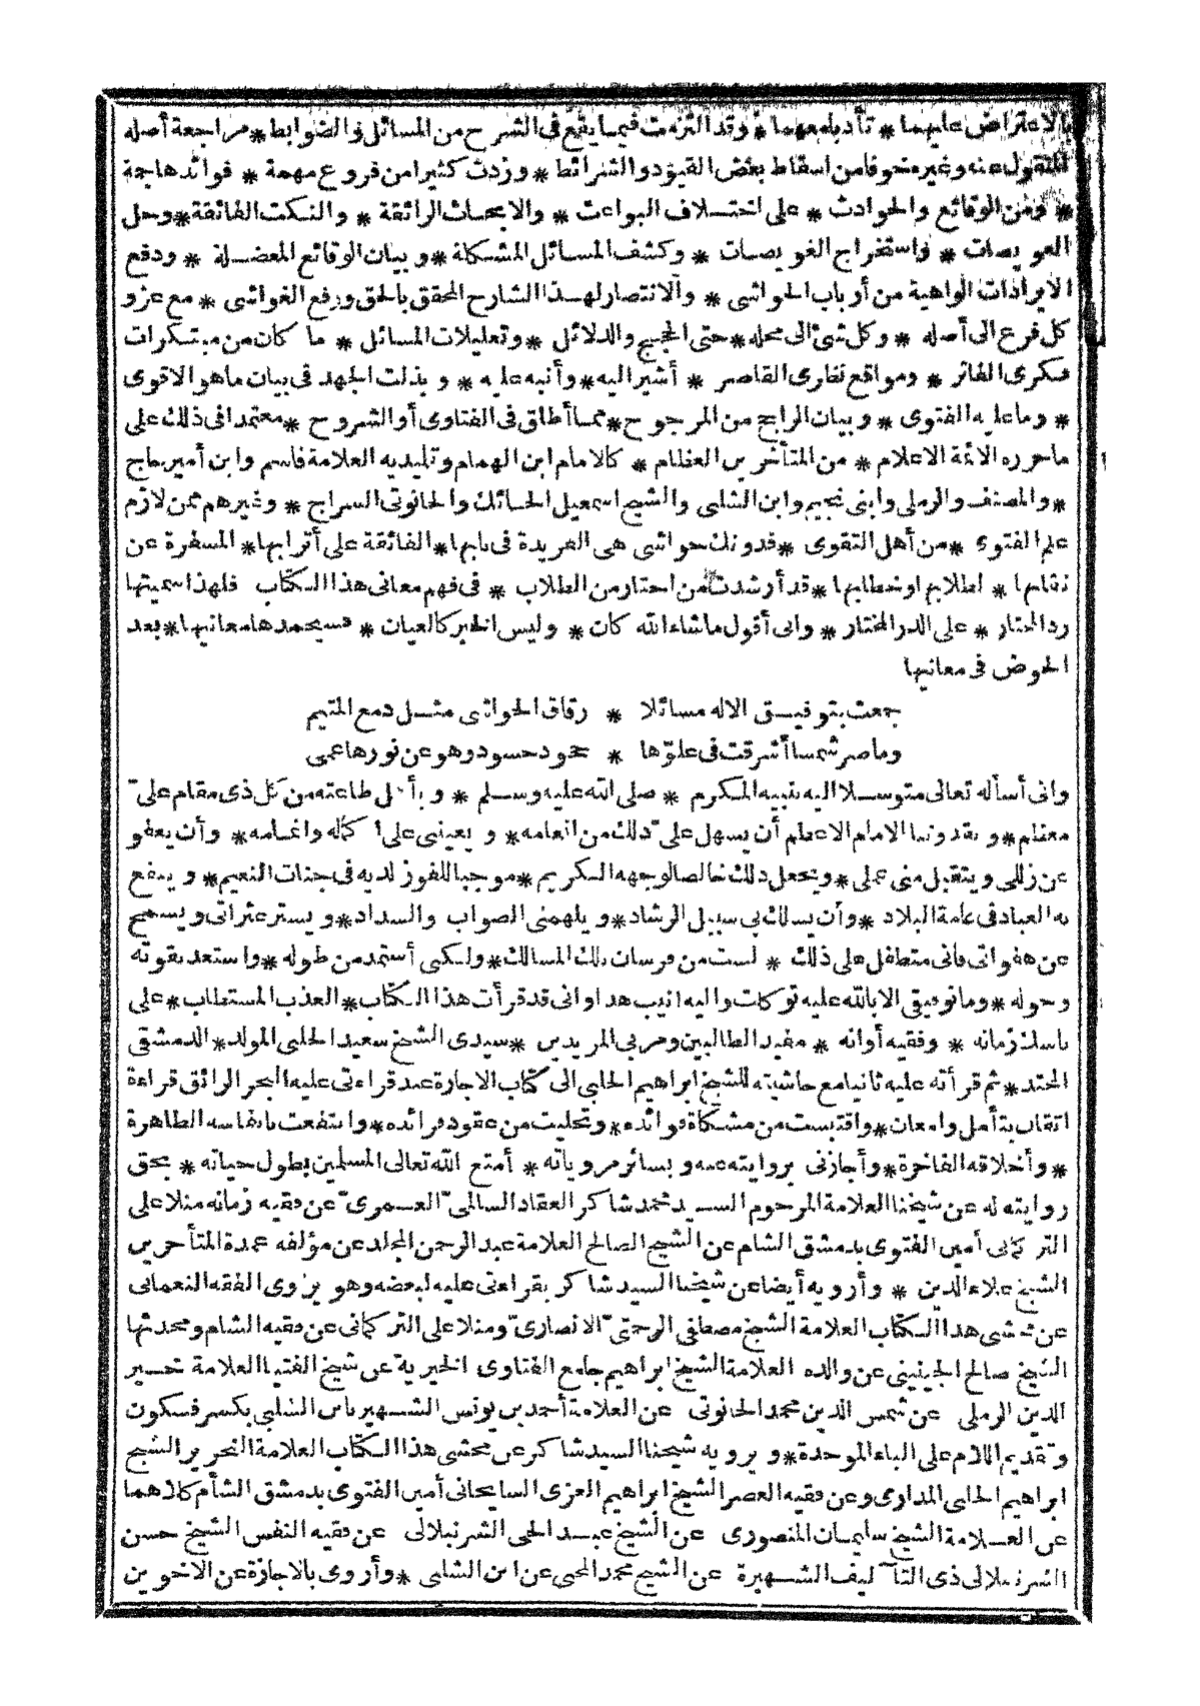 بالاعتراض عليهما * تأدبا معهما * وقد التزمت فيما يقع في الشرح من المسائل والضوابط * مراجعة أصله
المنقول عنه وغيره خوفا من اسقاط بعض القيود والشرائط * وزدت كثيرا من فروع مهمة * فوائدها جمة
* ومن الوقائع والحوادث * على اختلاف البواعث * والابحاث الرائقة * والنكت الفائقة * وحل
العويصات * واستخراج الغويصات * وكشف المسائل المشكلة * وبيان الوقائع المعضلة * ودفع
الايرادات الواهية من أرباب الحواشى * والانتصار لهذا الشارح المحقق بالحق ورفع الغواشى * مع عزو
كل فرع الى أصله * وكل شئ الى محله * حتى الحجج والدلائل * وتعليلات المسائل * وما كان من مبتكرات
فكرى الفاتر * ومواقع نظرى القاصر * أشير اليه * وأنبه عليه * وبذلت الجهد فى بيان ما هو الاقوى
* وما عليه الفتوى * وبيان الراجح من المرجوح * مما أطلق فى الفتاوى أو الشروح * معتمدا فى ذلك على
ما حرره الائمة الاعلام * من المتأخرين العظام * كالامام ابن الهمام وتلميذيه العلامة قاسم وابن أمير حاج
* والمصنف والرملى وابنى نجيم وابن الشلبى والشيخ اسمعيل الحائك والحانوتى السراج * وغيرهم ممن لازم
علم الفتوى * من أهل التقوى * فدونك حواشى هى الفريدة فى بابها * الفائقة على أترابها * المسفرة عن
نقابها * لطلابها وخطابها * قد أرشدت من احتار من الطلاب * فى فهم معانى هذا الكتاب فلهذا سميتها
رد المحتار * على الدر المختار * وانى أقول ما شاء الله كان * وليس الخبر كالعيان * فسيحمدها معانيها * بعد
الخوض فى معانيها
جمعت بتوفيق الاله مسائلا * رقاق الحواشى مثل دمع المتيم
وما ضر شمسا أشرقت فى علوّها * جحود حسود وهو عن نورها عمى
وانى أسأله تعالى متوسلا اليه بنبيه المكرم * صلى الله عليه وسلم * وبأهل طاعته من كل ذى مقام علىّ
معظم * وبقدوتنا الامام الاعظم أن يسهل علىّ ذلك من انعامه * ويعيننى على اكماله واتمامه * وأن يعفو
عن زللى ويتقبل منى عملى * ويجعل ذلك خالصا لوجهه الكريم * موجبا للفوز لديه فى جنات النعيم * وينفع
به العباد فى عامة البلاد * وأن يسلك بى سبيل الرشاد * ويلهمنى الصواب والسداد * ويستر عثراتى ويسمح
عن هفواتى فانى متطفل على ذلك * لست من فرسان تلك المسالك * ولكنى أستمد من طوله * واستعد بقوته
وحوله * وما توفيقى الا بالله عليه توكلت واليه انيب هذا وانى قد قرأت هذا الكتاب * العذب المستطاب * على
ناسك زمانه * وفقيه أوانه * مفيد الطالبين ومربى المريدين * سيدى الشيخ سعيد الحلبى المولد * الدمشقى
المحتد * ثم قرأته عليه ثانيا مع حاشيته للشيخ ابراهيم الحلبى الى كتاب الاجارة عند قراءتى عليه البحر الرائق قراءة
اتقان بتأمل وامعان * واقتبست من مشكاة فوائده * وتحليت من عقود فرائده * وانتفعت بانفاسه الطاهرة
* وأخلاقه الفاخرة * وأجازنى بروايته عنه وبسائر مروياته * أمتع الله تعالى المسلمين بطول حياته * بحق
روايته له عن شيخنا العلامة المرحوم السيد محمد شاكر العقاد السالمىّ العمرىّ عن فقيه زمانه منلا على
التركمانى أمين الفتوى بدمشق الشام عن الشيخ الصالح العلامة عبد الرحمن المجلد عن مؤلفه عمدة المتأخرين
الشيخ علاء الدين * وأرويه أيضا عن شيخنا السيد شاكر بقراءتى عليه لبعضه وهو يروى الفقه النعمانى
عن محشى هذا الكتاب العلامة الشيخ مصطفى الرحمتىّ الانصارىّ ومنلا على التركمانى عن فقيه الشام ومحدثها
الشيخ صالح الجينينى عن والده العلامة الشيخ ابراهيم جامع الفتاوى الخيرية عن شيخ الفتيا العلامة خير
الدين الرملى عن شمس الدين محمد الحانوتى عن العلامة أحمد بن يونس الشهير بابن الشلبى بكسر فسكون
وتقديم اللام على الباء الموحدة * ويرويه شيخنا السيد شاكر عن محشى هذا الكتاب العلامة النحرير الشيخ
ابراهيم الحلبى المدارى وعن فقيه العصر الشيخ ابراهيم الغزى السايحانى أمين الفتوى بدمشق الشأم كلاهما
عن العلامة الشيخ سليمان المنصورى عن الشيخ عبد الحى الشرنبلالى عن فقيه النفس الشيخ حسن
الشرنبلالى ذى التآليف الشهيرة عن الشيخ محمد المحبى عن ابن الشلبى * وأروى بالاجازة عن الاخوين